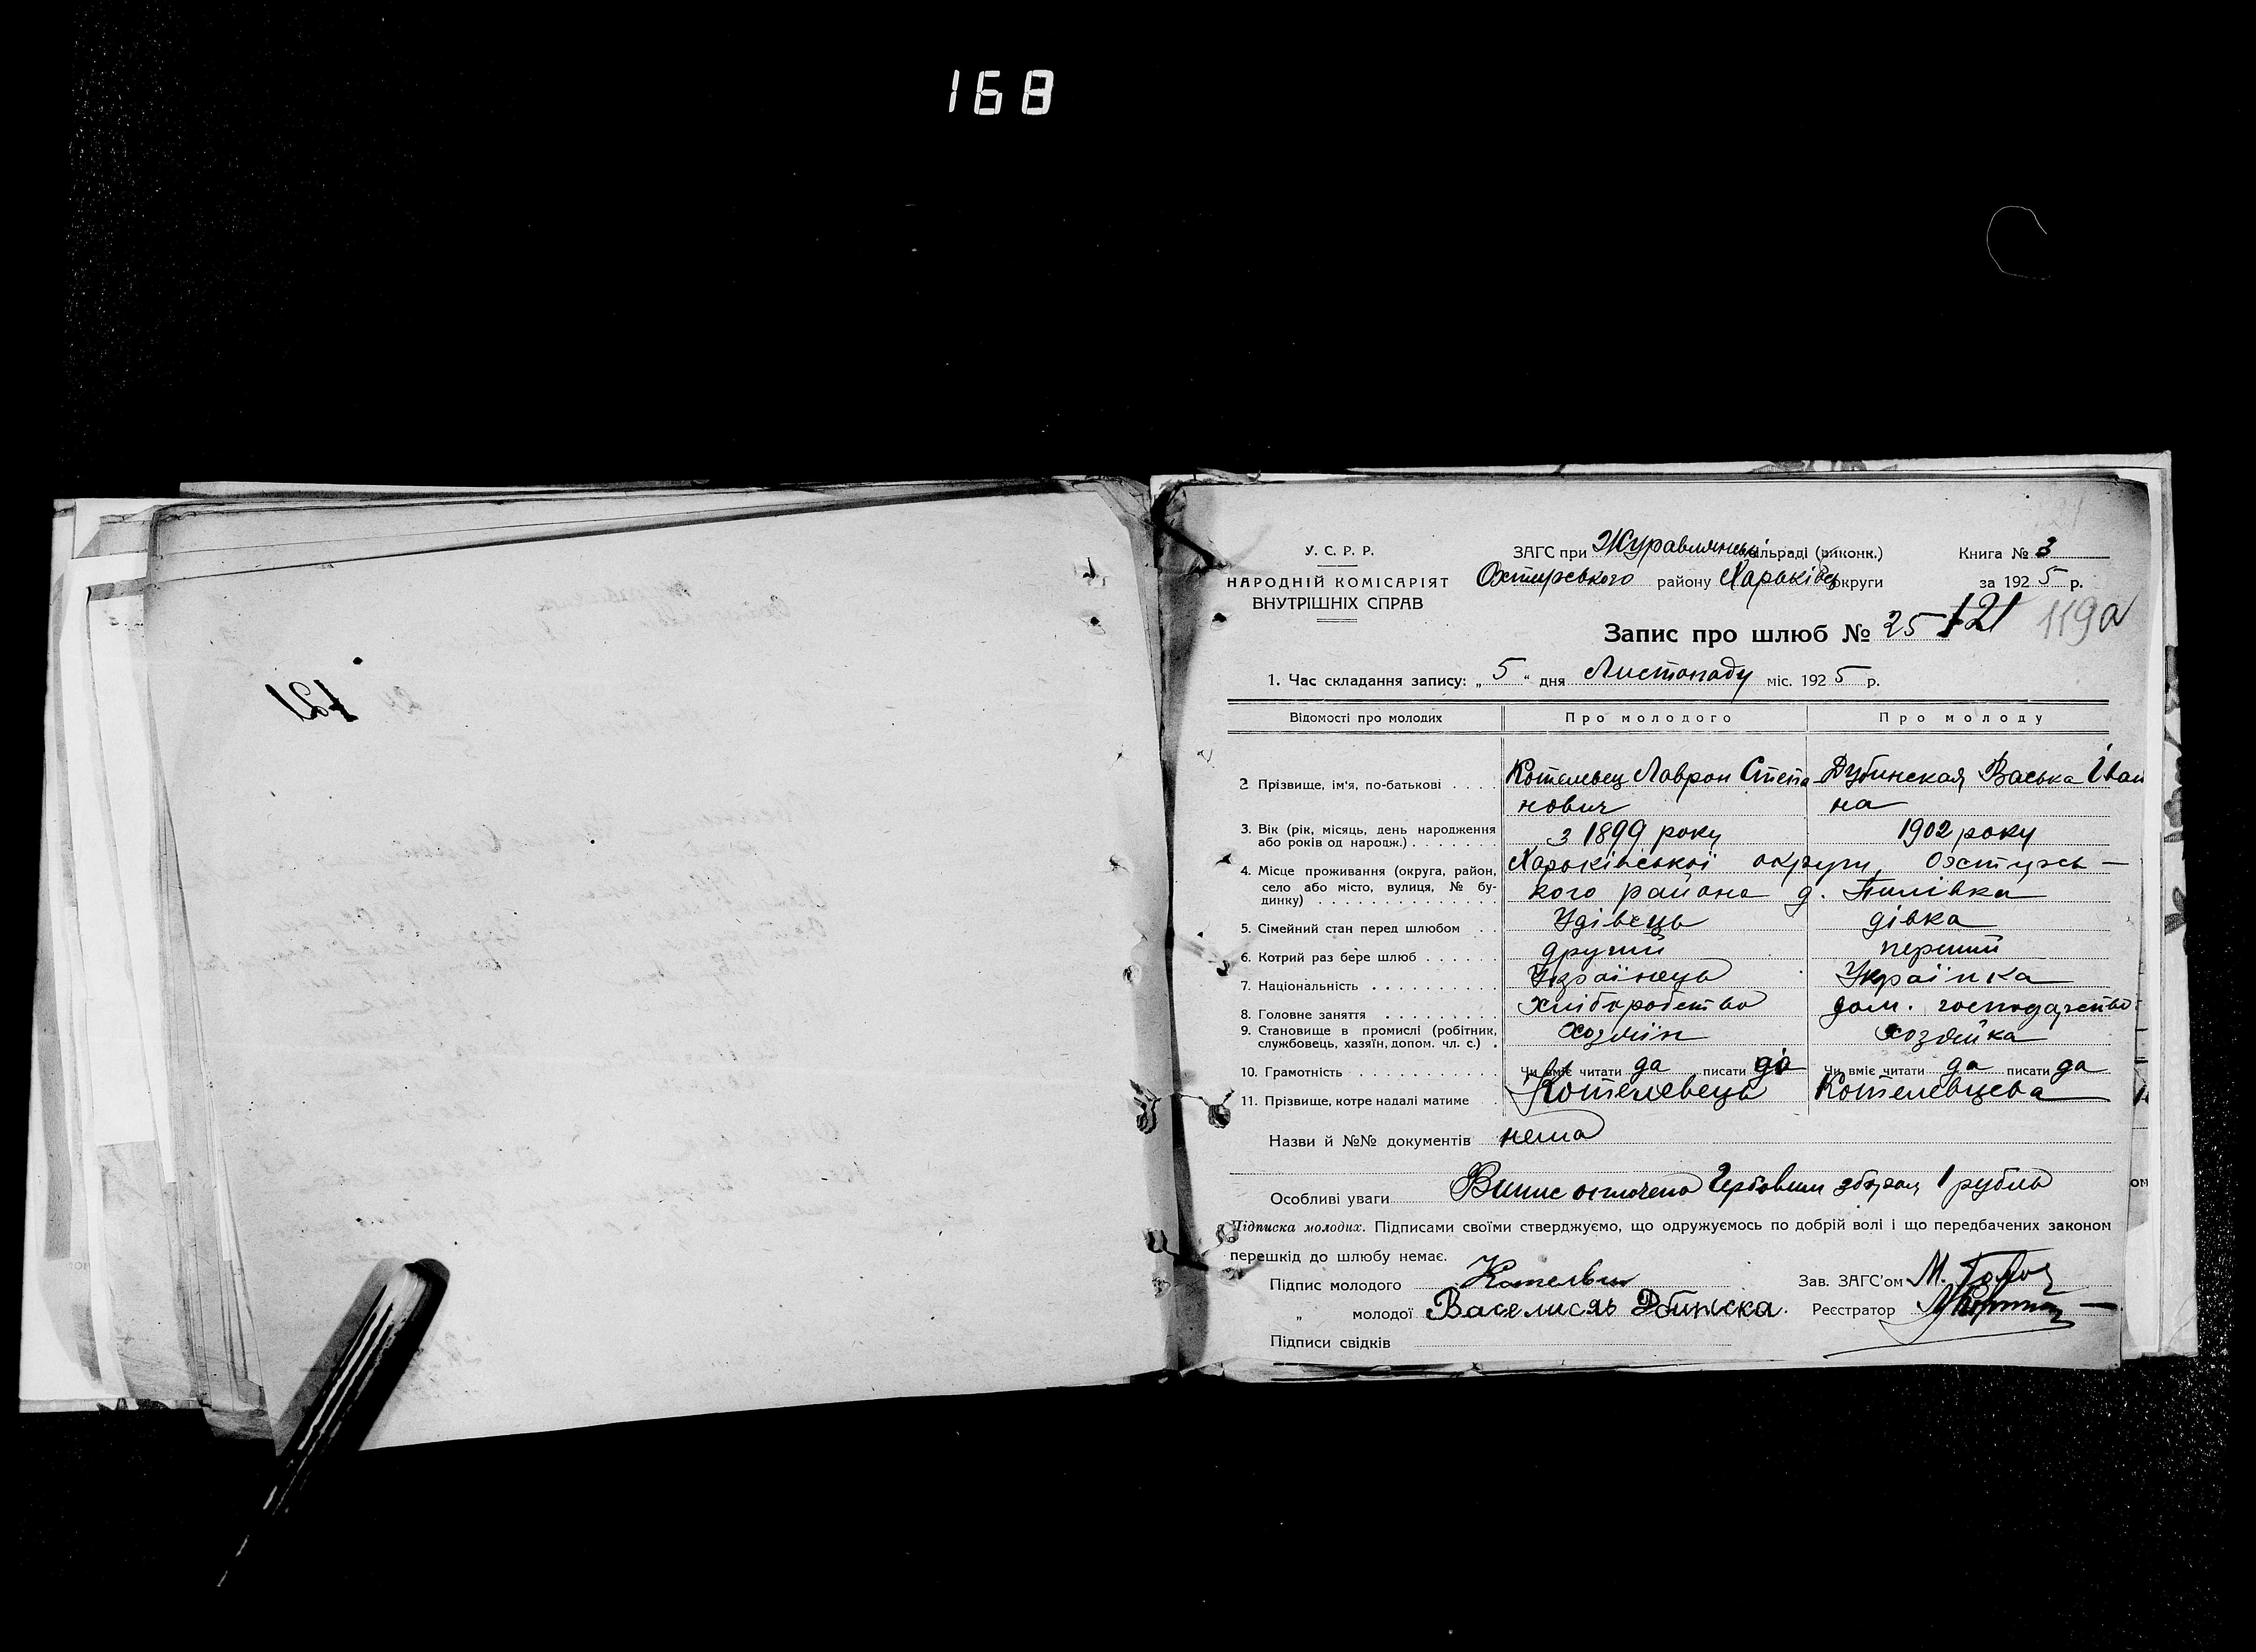 168
У. С. Р. Р.
НАРОДНІЙ КОМІСАРІЯТ
ВНУТРІШНІХ СПРАВ
ЗАГС при Журавлянські сільраді (виконк.)
Книга № 3
Охтирського району Харьківсь округи
за 1925 р.
Запис про шлюб № 25 121 119а
1. Час складання запису: „5“ дня Листопаду міс. 1925 р.
Відомості про молодих
Про молодого
Про молоду
2 Прізвище, ім'я, по-батькові . . . . Котелевец Лаврон Степа Дубинская Васька Іван
нович на
3. Вік (рік, місяць, день народження або років од народж.) . . . . . . . з 1899 року 1902 року
4. Місце проживання (округа, район, село або місто, вулиця, № будинку) . . . Харьківської округи, Охтирсь—
кого района д. Пилівка
5. Сімейний стан перед шлюбом . . Удівець дівка
6. Котрий раз бере шлюб . . . . . . другий перший
7. Національність . . . . . . . . . . Українець Українка
8. Головне заняття . . . . . . . . . хліборобство дом. господарство
9. Становище в промислі (робітник, службовець, хазяїн, допом. чл. с.) . Хозяін хозяйка
10. Грамотність . . . . . . . . . . . Чи вміє читати да писати да Чи вміє читати да писати да
11. Прізвище, котре надалі матиме . Котелевець Котелевцева
Назви й №№ документів нема
Особливі уваги Випис оплочено Гербовим збором 1 рубль
Підписка молодих. Підписами своїми стверджуємо, що одружуємось по добрій волі і що передбачених законом
перешкід до шлюбу немає.
Підпис молодого
Зав. ЗАГС'ом М.
„ молодої Васелисяь Дбинска. Реєстратор
Підписи свідків
121